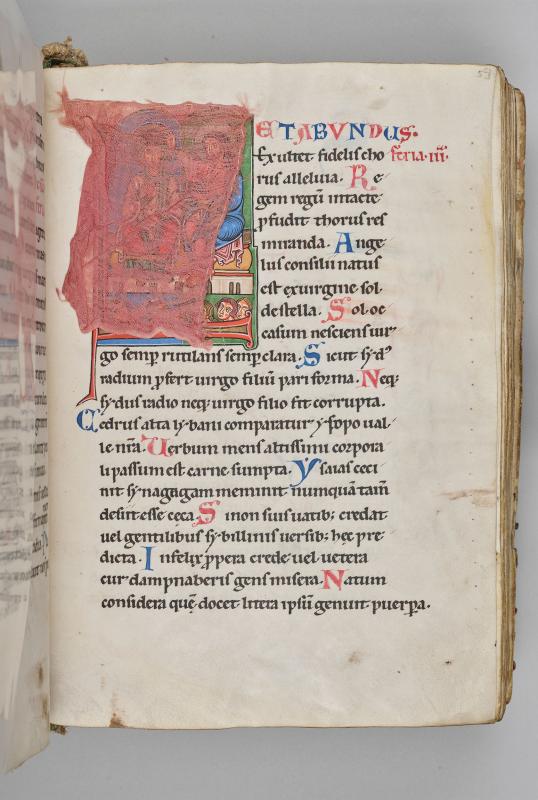 ETABVNDUS.
Exultet fidelis cho feria .iii.
rus alleluia. Re
gem regū intacte
ꝓfudit thorus res
miranda. Ange
lus consilii natus
est ex uirgine sol
de stella. Sol oc
casum nesciens uir
go semꝑ rutilans semꝑ clara. Sicut sẏdꝰ
radium ꝓfert uirgo filiū pari forma. Neq;
sẏdus radio neq; uirgo filio fit corrupta.
Cedrus alta lẏbani comparatur ẏsopo ual
le nr̄a. Uerbum mens altissimi corpora
li passum est carne sumpta. Ysaias ceci
nit sẏnagͦga meminit numquā tam̄
desinit esse cęca. Si non suis uatib; credat
uel gentilibus sẏbillinis uersib; hęc pre
dicta. Infelix ꝓpera crede uel uetera
cur dampnaberis gens misera. Natum
considera quę docet litera ipsū genuit puerpa.